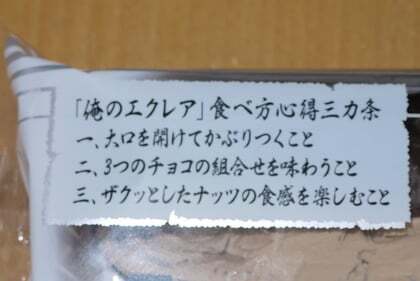 「俺のエクレア」食べ方心得三カ条
一、大口を開けてかぶりつくこと
二、3つのチョコの組合せを味わうこと
三、ザクッとしたナッツの食感を楽しむこと